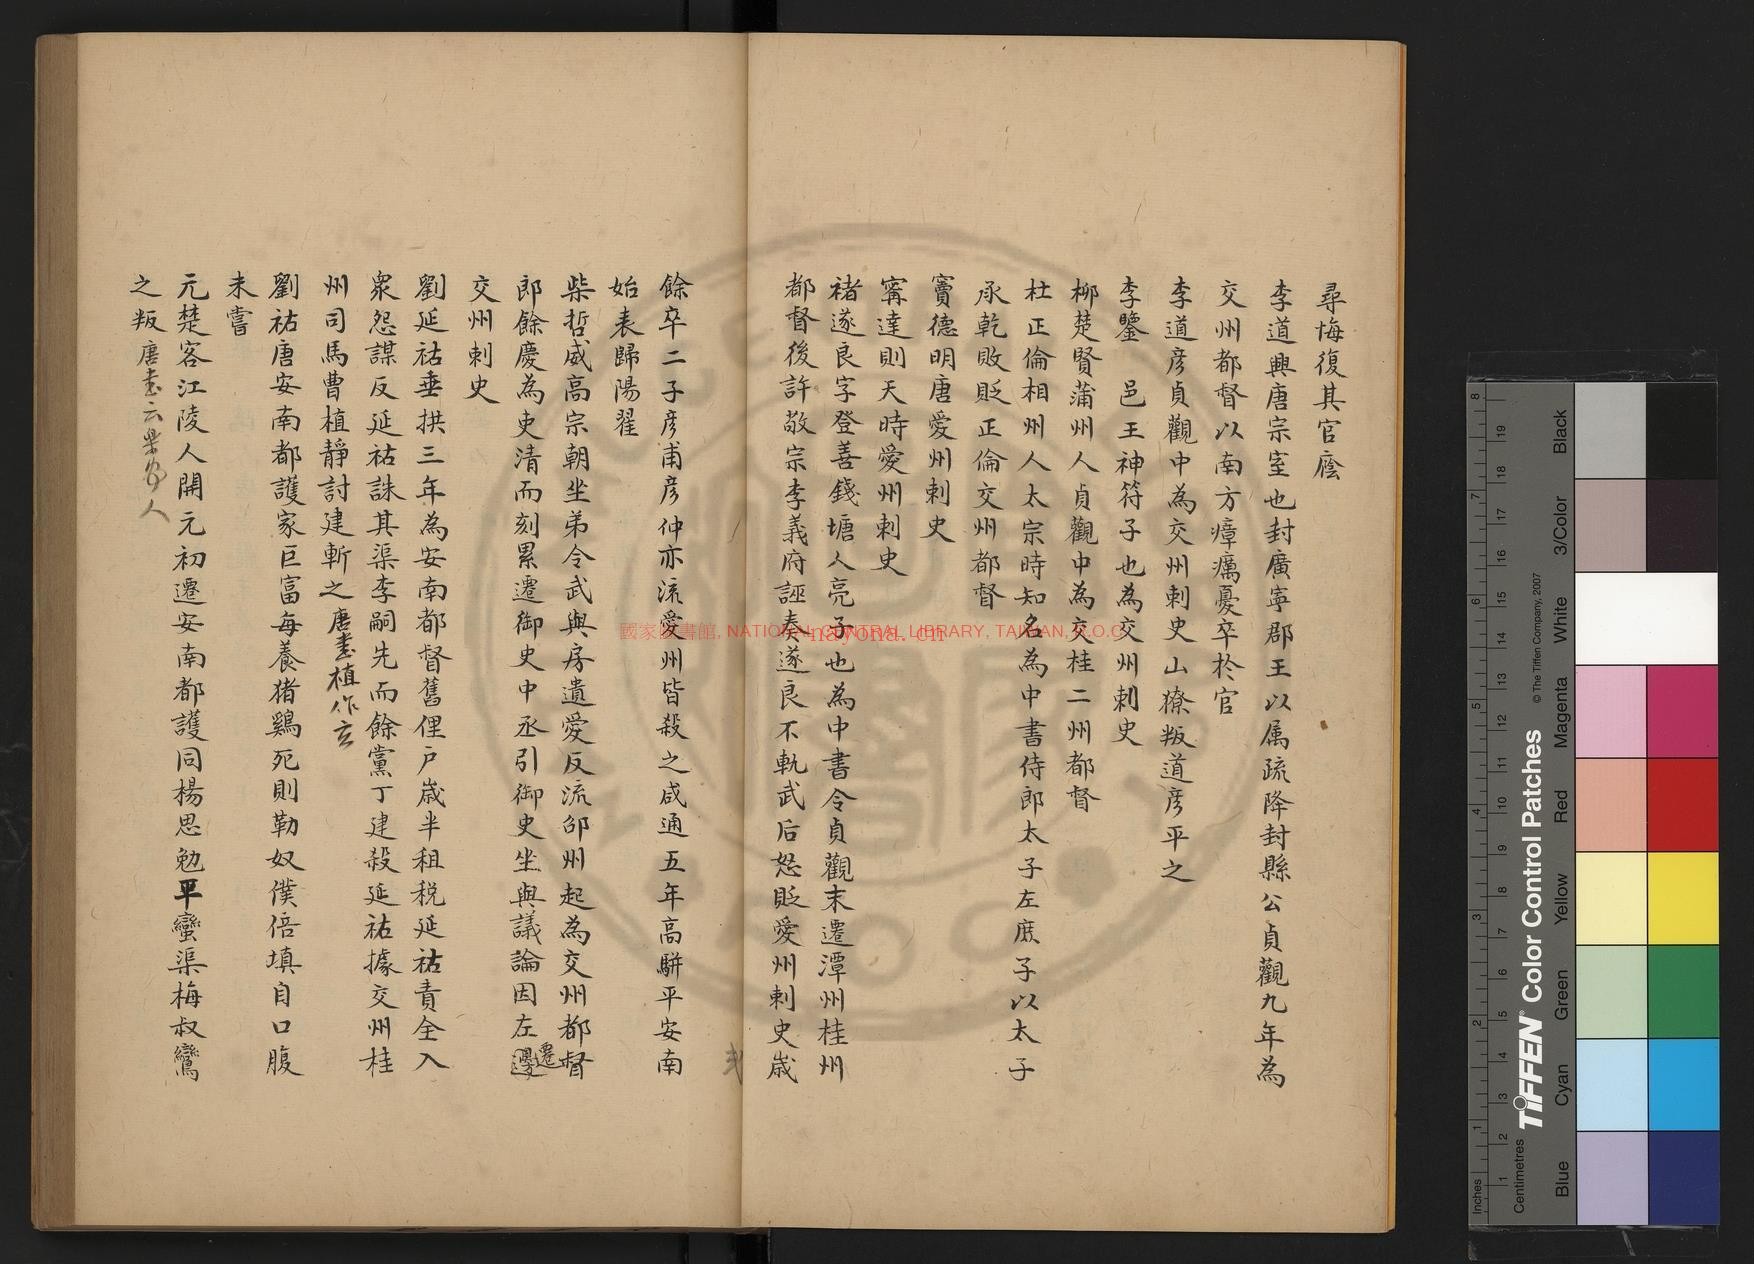 尋悔復其官廕
李道興唐宗室也封廣寧郡王以属疏降封縣公貞觀九年為
交州都督以南方瘴癘憂卒於官
李道彦貞觀中為交州刺史山獠叛道彦平之
李鑒　邑王神符子也為交州刺史
柳楚賢蒲州人貞觀中為交桂二州都督
杜正倫相州人太宗時知名為中書侍郎太子左庶子以太子
承乾敗貶正倫交州都督
竇德明唐愛州刺史
甯達則天時愛州刺史
褚遂良字登善錢塘人亮子也為中書令貞觀末遷潭州桂州
都督後許敬宗李義府誣奏遂良不軌武后怒貶愛州刺史歲
餘卒二子彦甫彦仲亦流愛州皆殺之咸通五年高駢平安南
始表歸陽翟
柴哲威高宗朝坐弟令武與房遺愛反流邠州起為交州都督
郎餘慶為吏清而刻累遷御史中丞引御史坐與議論因左遷
交州刺史
劉延祐垂拱三年為安南都督舊俚户歲半租税延祐責全入
衆怨謀反延祐誅其渠李嗣先而餘黨丁建殺延祐據交州桂
州司馬曹植靜討建斬之 唐書植作玄
劉祐唐安南都護家巨富每養猪鷄死則勒奴僕倍填自口腹
未嘗
元楚客江陵人開元初遷安南都護同楊思勉平蠻渠梅叔鸞
之叛 唐書云 人
國家圖書館, NATIONAL CENTRAL LIBRARY, TAIWAN, R.O.C
nayona.cn
Inches
Centimetres
TIFFEN® Color Control Patches
© The Tiffen Company, 2007
Blue
Cyan
Green
Yellow
Red
Magenta
White
3/Color
Black